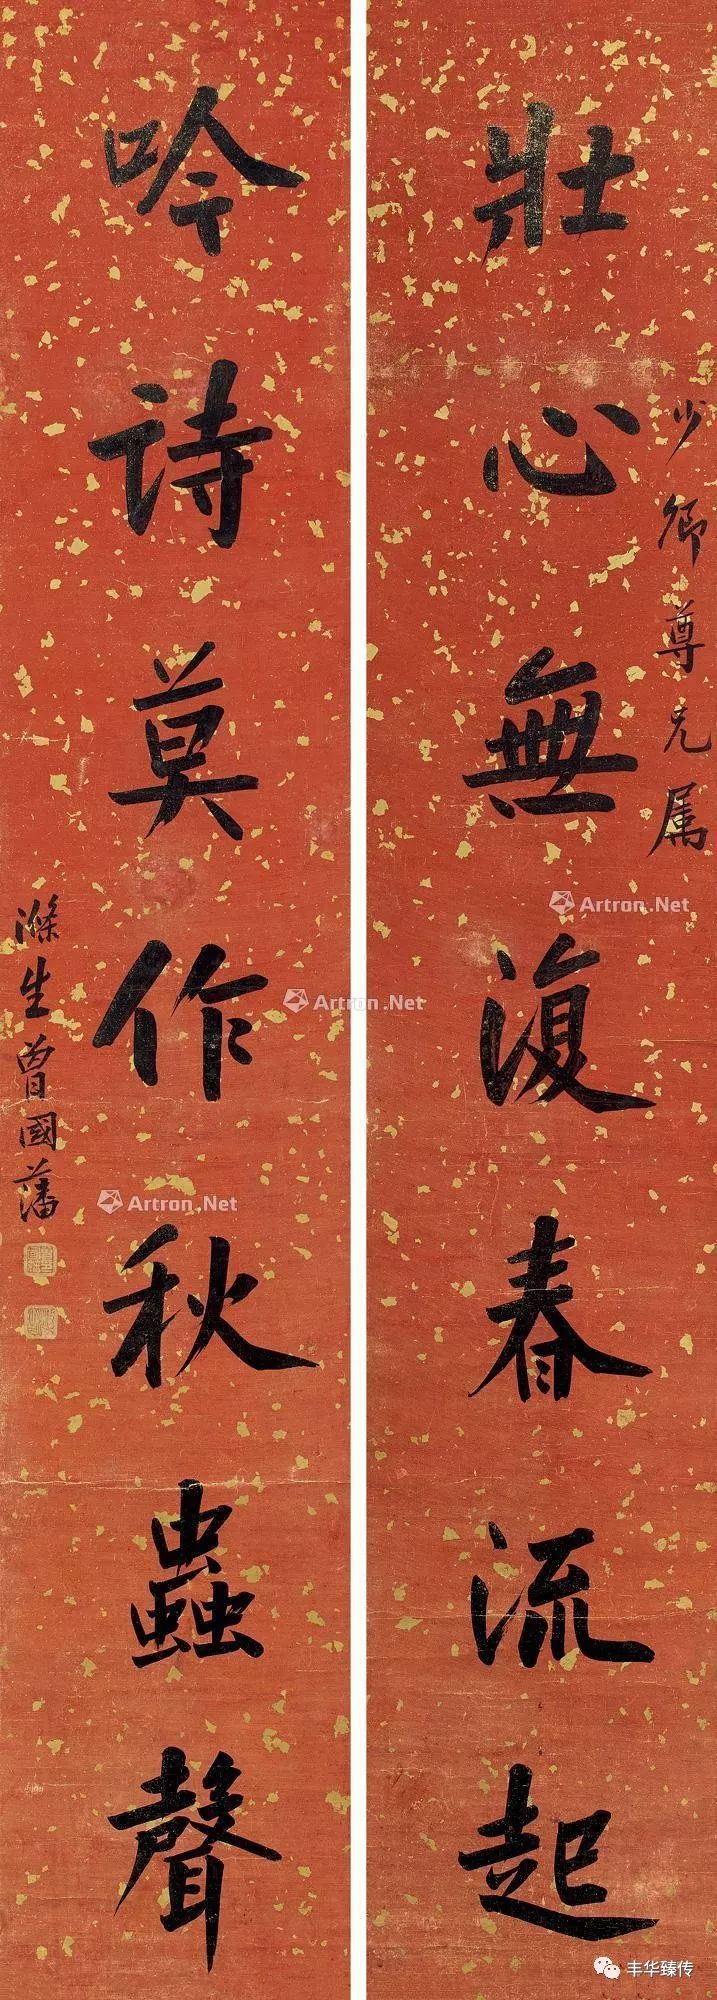 少卿尊兄属
壯心無復春流起
吟诗莫作秋蟲聲
滌生曾國藩
Artron.Net
Artron.Net
Artron.Net
丰华臻传